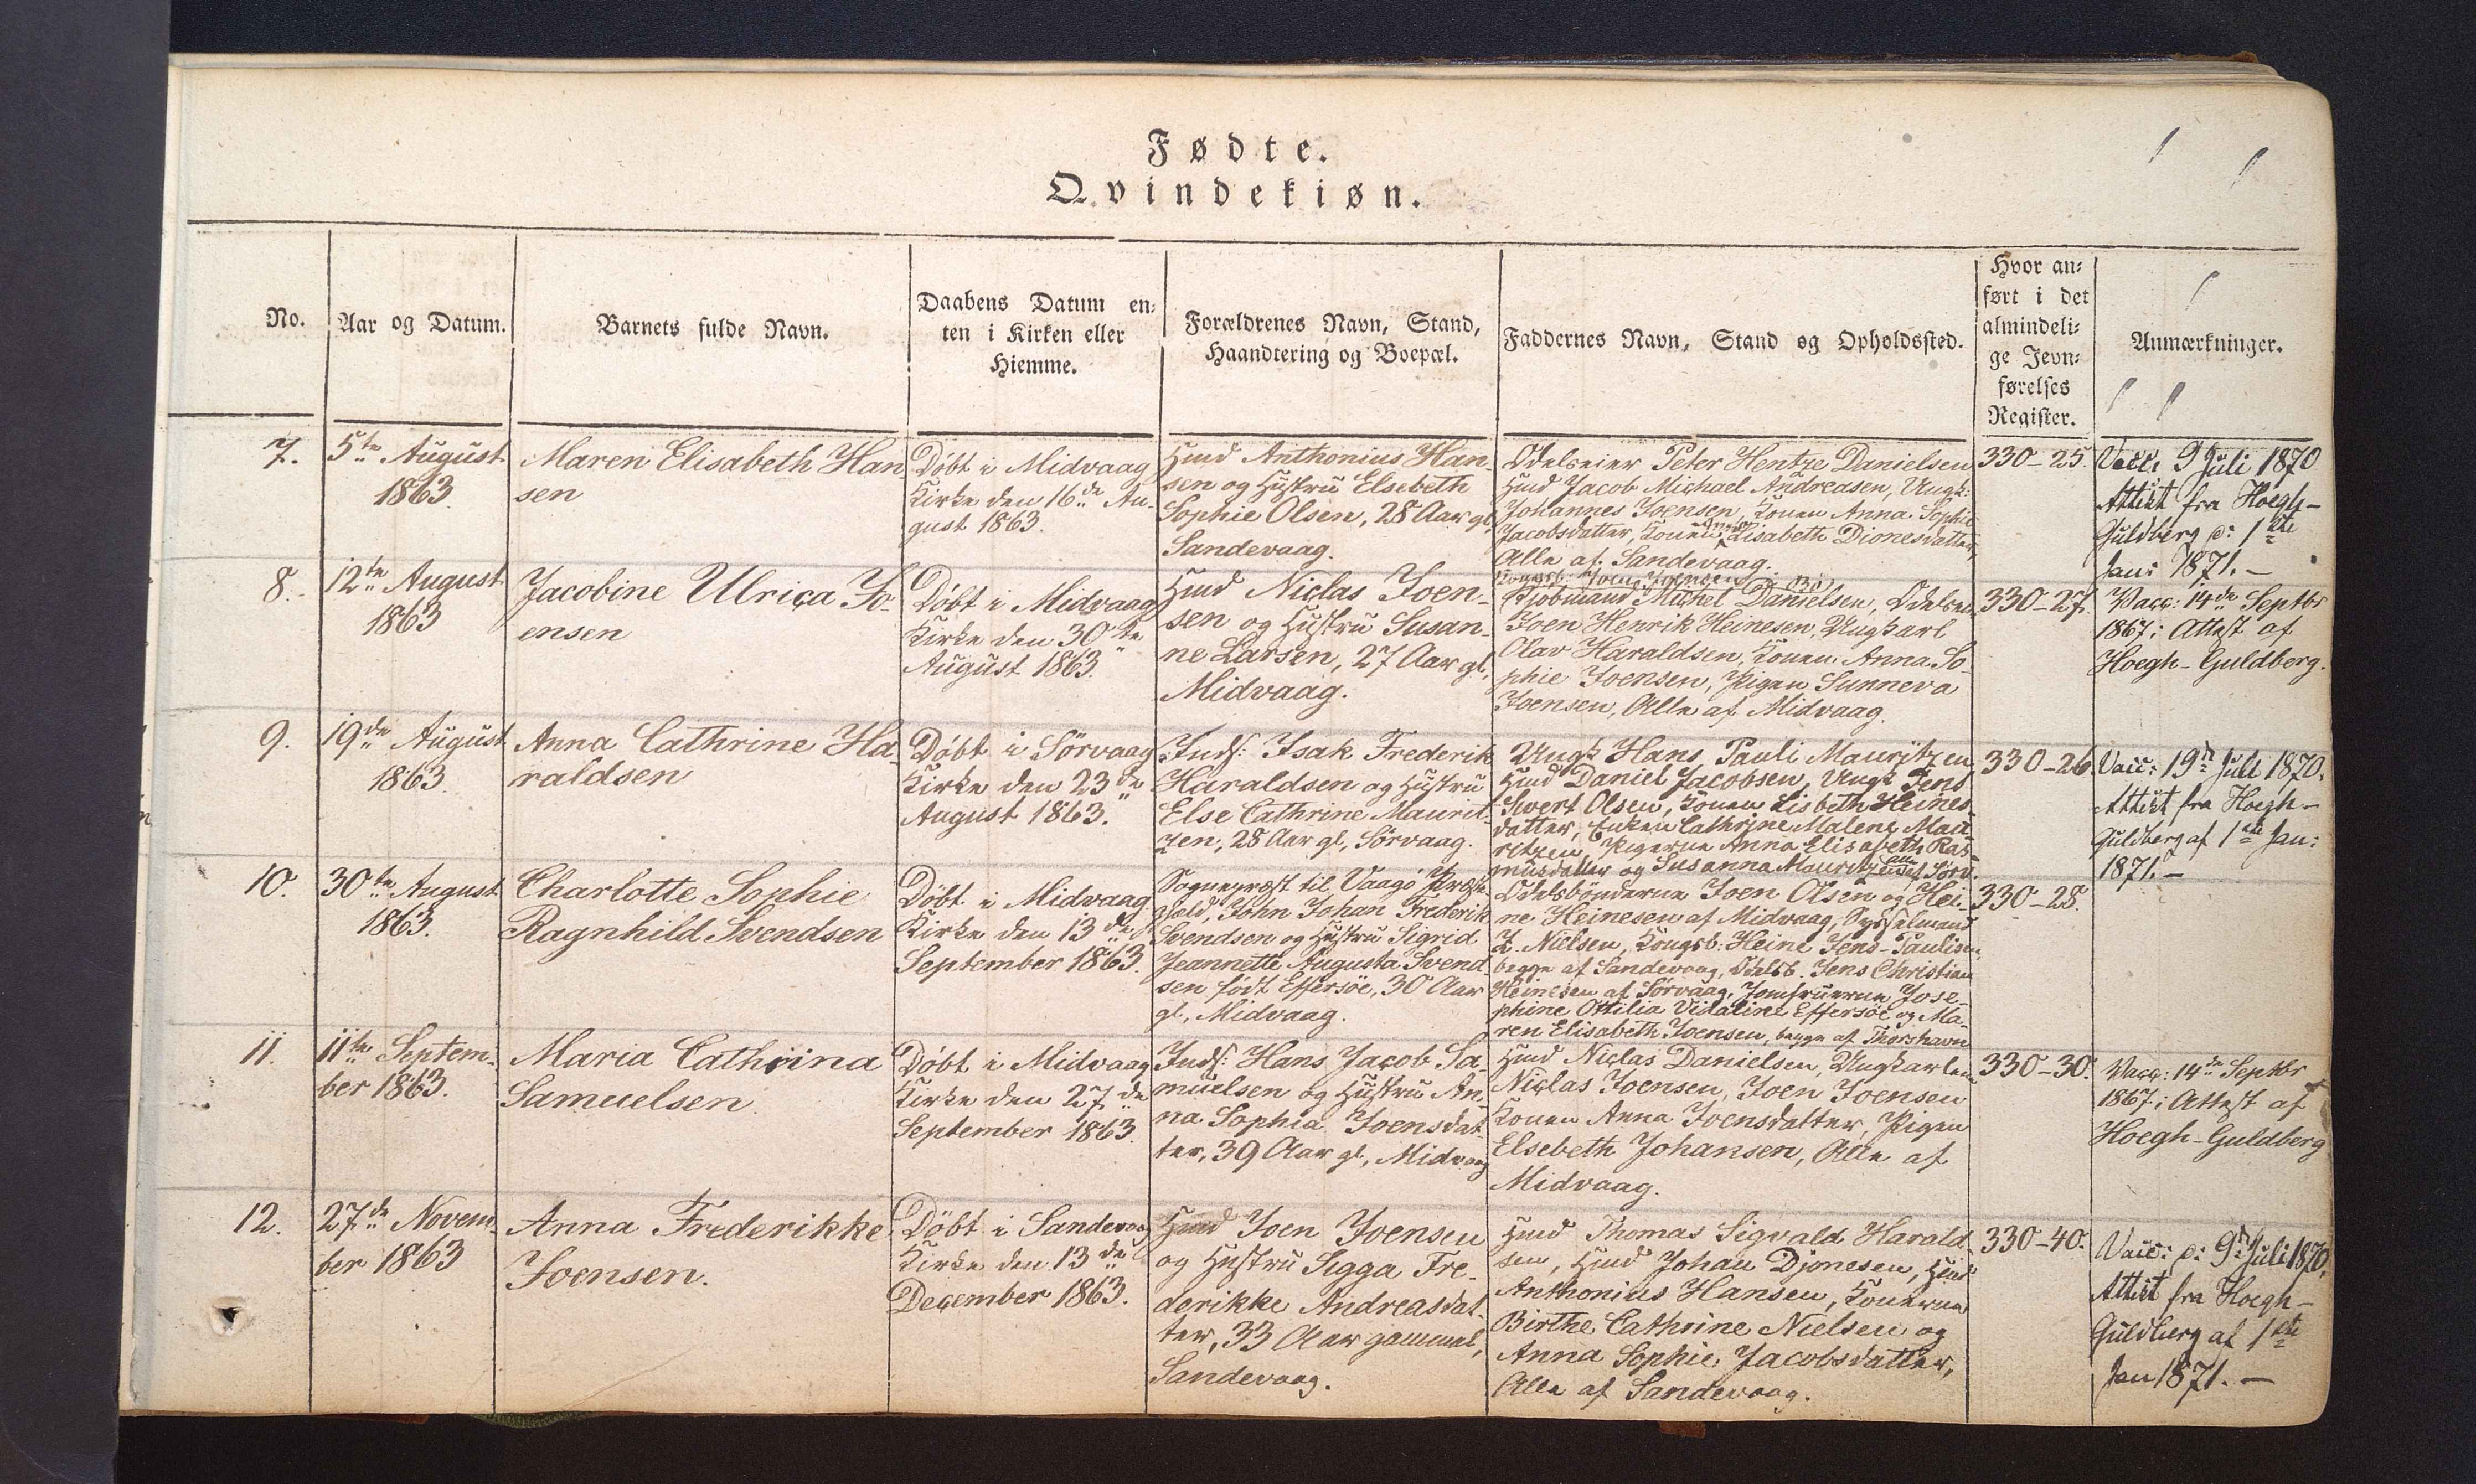 Fødte.
Qvindekiøn.
No.
Aar og Datum.
Barnets fulde Navn.
Daabens Datum en-
ten i Kirken eller
Hiemme.
Forældrenes Navn, Stand,
Haandtering og Boepæl.
Faddernes Navn, Stand og Opholdssted.
Hvor an-
ført i det
almindeli-
ge Jevn-
førelses
Register.
Anmærkninger.
7.
5te August
1863.
Maren Elisabeth Han-
sen
Döbt i Midvaag
Kirke den 16de Au-
gust 1863.
Hmd Anthonius Han-
sen og Hustru Elsebeth
Sophie Olsen, 28 Aar gl,
Sandevaag.
Odelseier Peter Hentze Danielsen
Hmd Jacob Michael Andreasen, Ungk:
Johannes Joensen, Konen Anna Sophie
Jacobsdatter, Konen Lisabeth Dionesdatter,
Alle af Sandevaag.
330-25.
Vacc: 9 Juli 1870
Attest fra Hoegh-
Guldberg d: 1ste
Jan: 1871.-
8.
12te August
1863
Jacobine Ulrica Jo-
ensen
Döbt i Midvaag
Kirke den 30te
August 1863.
Hmd Niclas Joen-
sen og Hustru Susan-
ne Larsen, 27 Aar gl,
Midvaag.
Kongsb: Joen Joensen
Michel Danielsen, Odelsb
Joen Henrik Heinesen, Ungkarl
Olav Haraldsen, Konen Anna So-
phie Joensen, Pigen Sunneva
Joensen, Alle af Midvaag.
330-27.
Vacc: 14de Septbr
1867; Attest af
Hoegh-Guldberg.
9.
19de August
1863.
Anna Cathrine Ha-
raldsen
Döbt i Sörvaag
Kirke den 23de
August 1863.
Inds: Isak Frederik
Haraldsen og Hustru
Else Cathrine Maurit-
zen, 28 Aar gl, Sörvaag.
Ungk Hans Pauli Mauritzen
Hmd Daniel Jacobsen, Ungk Jens
Sivert Olsen, Konen Lisbeth Heines-
datter, Enken Cathrine Malene Mau-
ritzen, Pigerne Anna Elisabeth Ras-
musdatter og Susanna Mauritzen af Sörv.
330-26.
Vacc: 19de Juli 1870.
Attest fra Hoegh-
Guldberg af 1ste Jan:
1871.-
10.
30te August
1863.
Charlotte Sophie
Ragnhild Svendsen
Döbt i Midvaag
Kirke den 13de
September 1863.
Sognepræst til Vaagö Præste-
gjeld, John Johan Frederik
Svendsen og Hustru Sigrid
Jeannette Augusta Svend-
sen födt Effersöe, 30 Aar
gl, Midvaag.
Odelsbönderne Joen Olsen og Hei-
ne Heinesen af Midvaag, Sysselmand
Z. Nielsen, Kongsb: Heine Jens-Paulisen,
begge af Sandevaag, Odelsb. Jens Christian
Heinesen af Sörvaag, Jomfruerne Jose-
phine Ottilia Vidaline Effersöe og Ma-
ren Elisabeth Joensen, begge af Thorshavn
330-28.
11.
11te Septem-
ber 1863.
Maria Cathrina
Samuelsen
Döbt i Midvaag
Kirke den 27de
September 1863.
Inds: Hans Jacob Sa-
muelsen og Hustru An-
na Sophia Joensdat-
ter, 39 Aar gl, Midvaag
Hmd Niclas Danielsen, Ungkarlene
Niclas Joensen, Joen Joensen
Konen Anna Joensdatter, Pigen
Elsebeth Johansen, Alle af
Midvaag.
330-30.
Vacc: 14de Septbr
1867; Attest af
Hoegh-Guldberg
12.
27de Novem-
ber 1863
Anna Frederikke
Joensen.
Döbt i Sandevaag
Kirke den 13de
December 1863.
Hmd Joen Joensen
og Hustru Sigga Fre-
derikke Andreasdat-
ter, 33 Aar gammel,
Sandevaag.
Hmd Thomas Sigvald Harald-
sen, Hmd Johan Djonesen, Hmd
Anthonius Hansen, Konerne
Birthe Cathrine Nielsen og
Anna Sophie Jacobsdatter,
Alle af Sandevaag.
330-40.
Vacc: d: 9de Juli 1870.
Attest fra Hoegh-
Guldberg af 1ste
Jan 1871.-